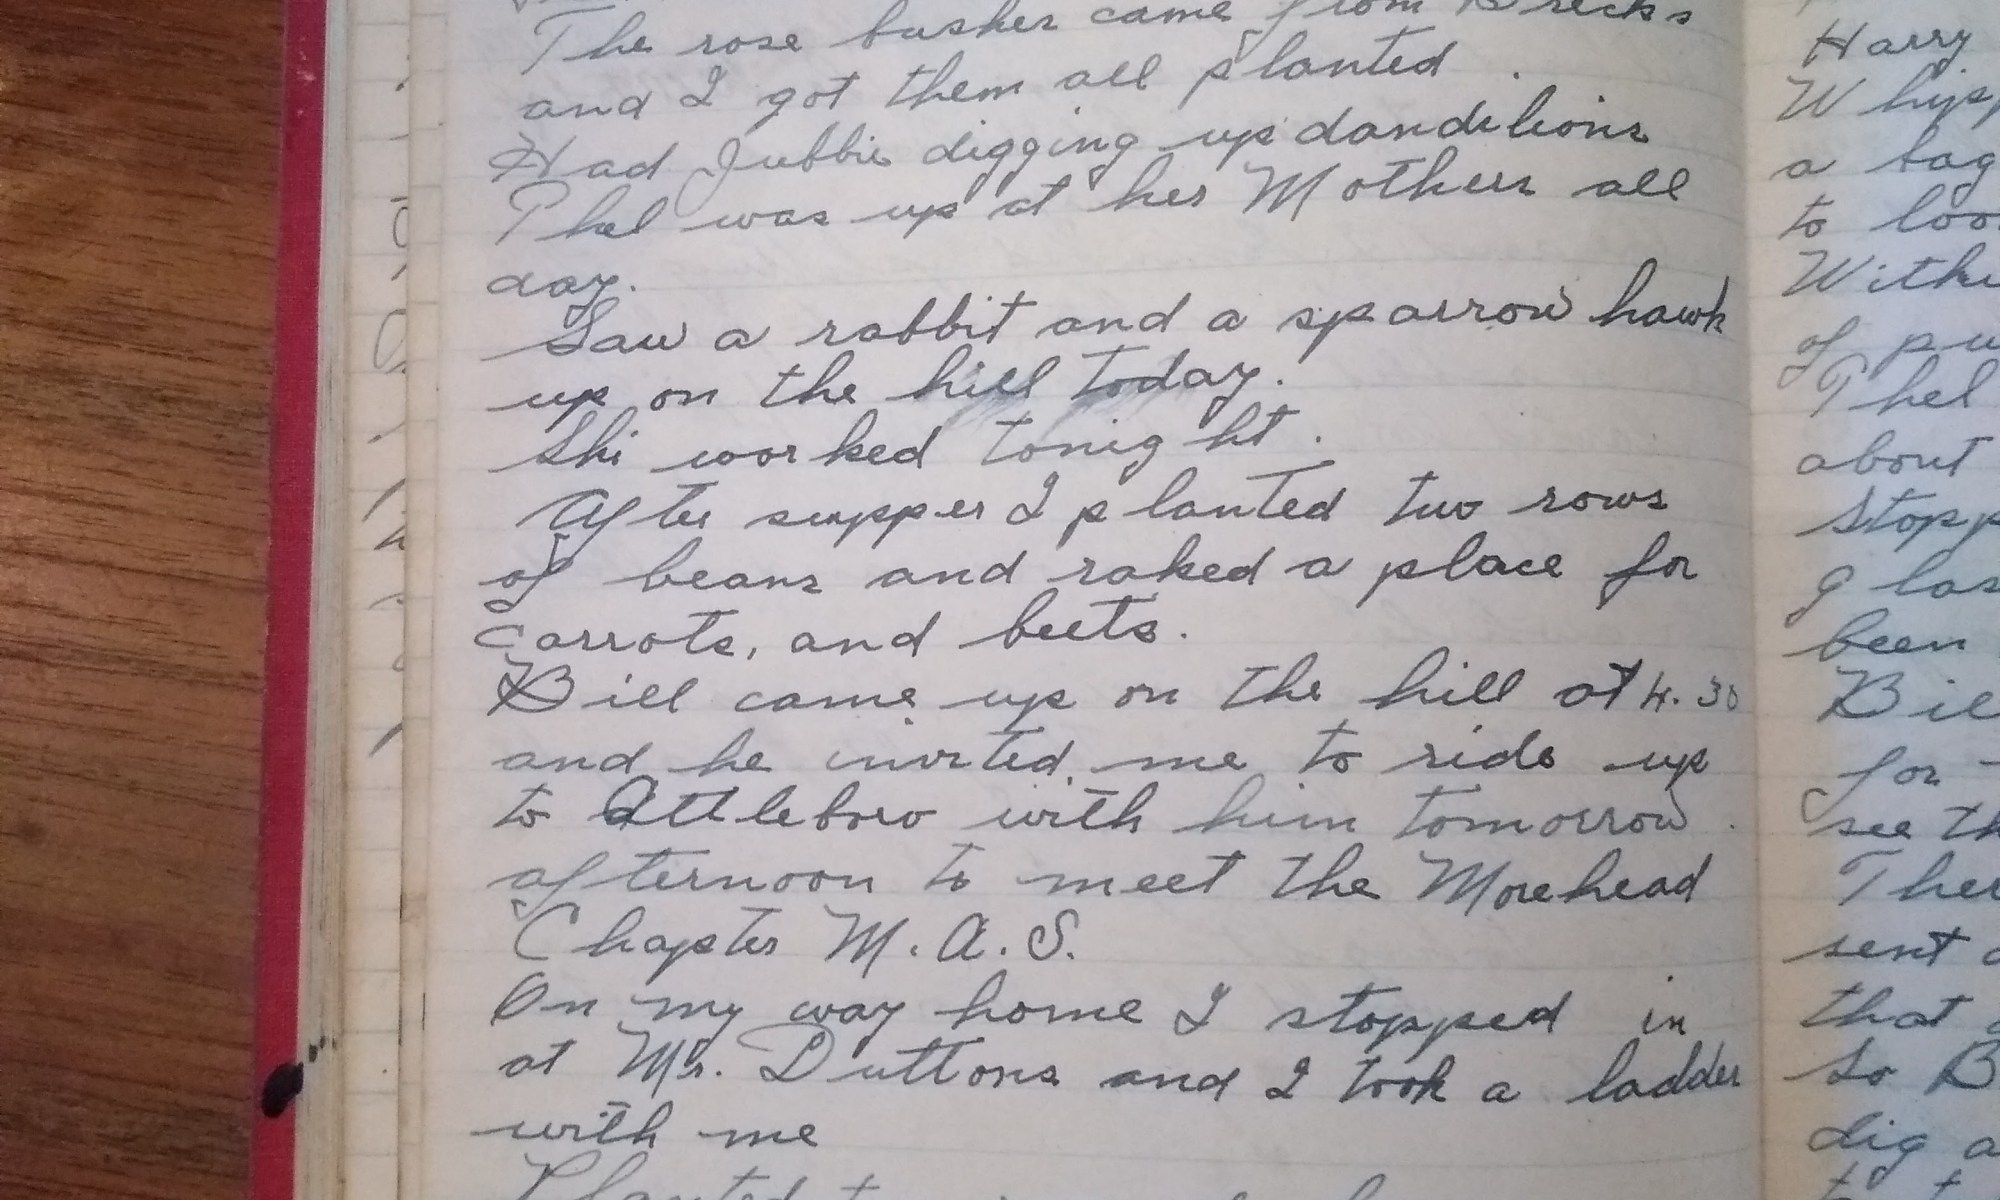 The rose bushes came from Brecks
and I got them all planted.
Had Jubbie digging up dandelions
Phel was up at her Mothers all
day.
Saw a rabbit and a sparrow hawk
up on the hill today.
She worked tonight.
After supper I planted two rows
of beans and raked a place for
carrots, and beets.
Bill came up on the hill at 4.30
and he invited me to ride up
to Attleboro with him tomorrow
afternoon to meet the Morehead
Chapter M.A.S.
On my way home I stopped in
at Mr. Duttons and I took a ladder
with me
Planted
Harry
a bag
to
of
Phel
about
been
for
see
sent
that
So B
dig a